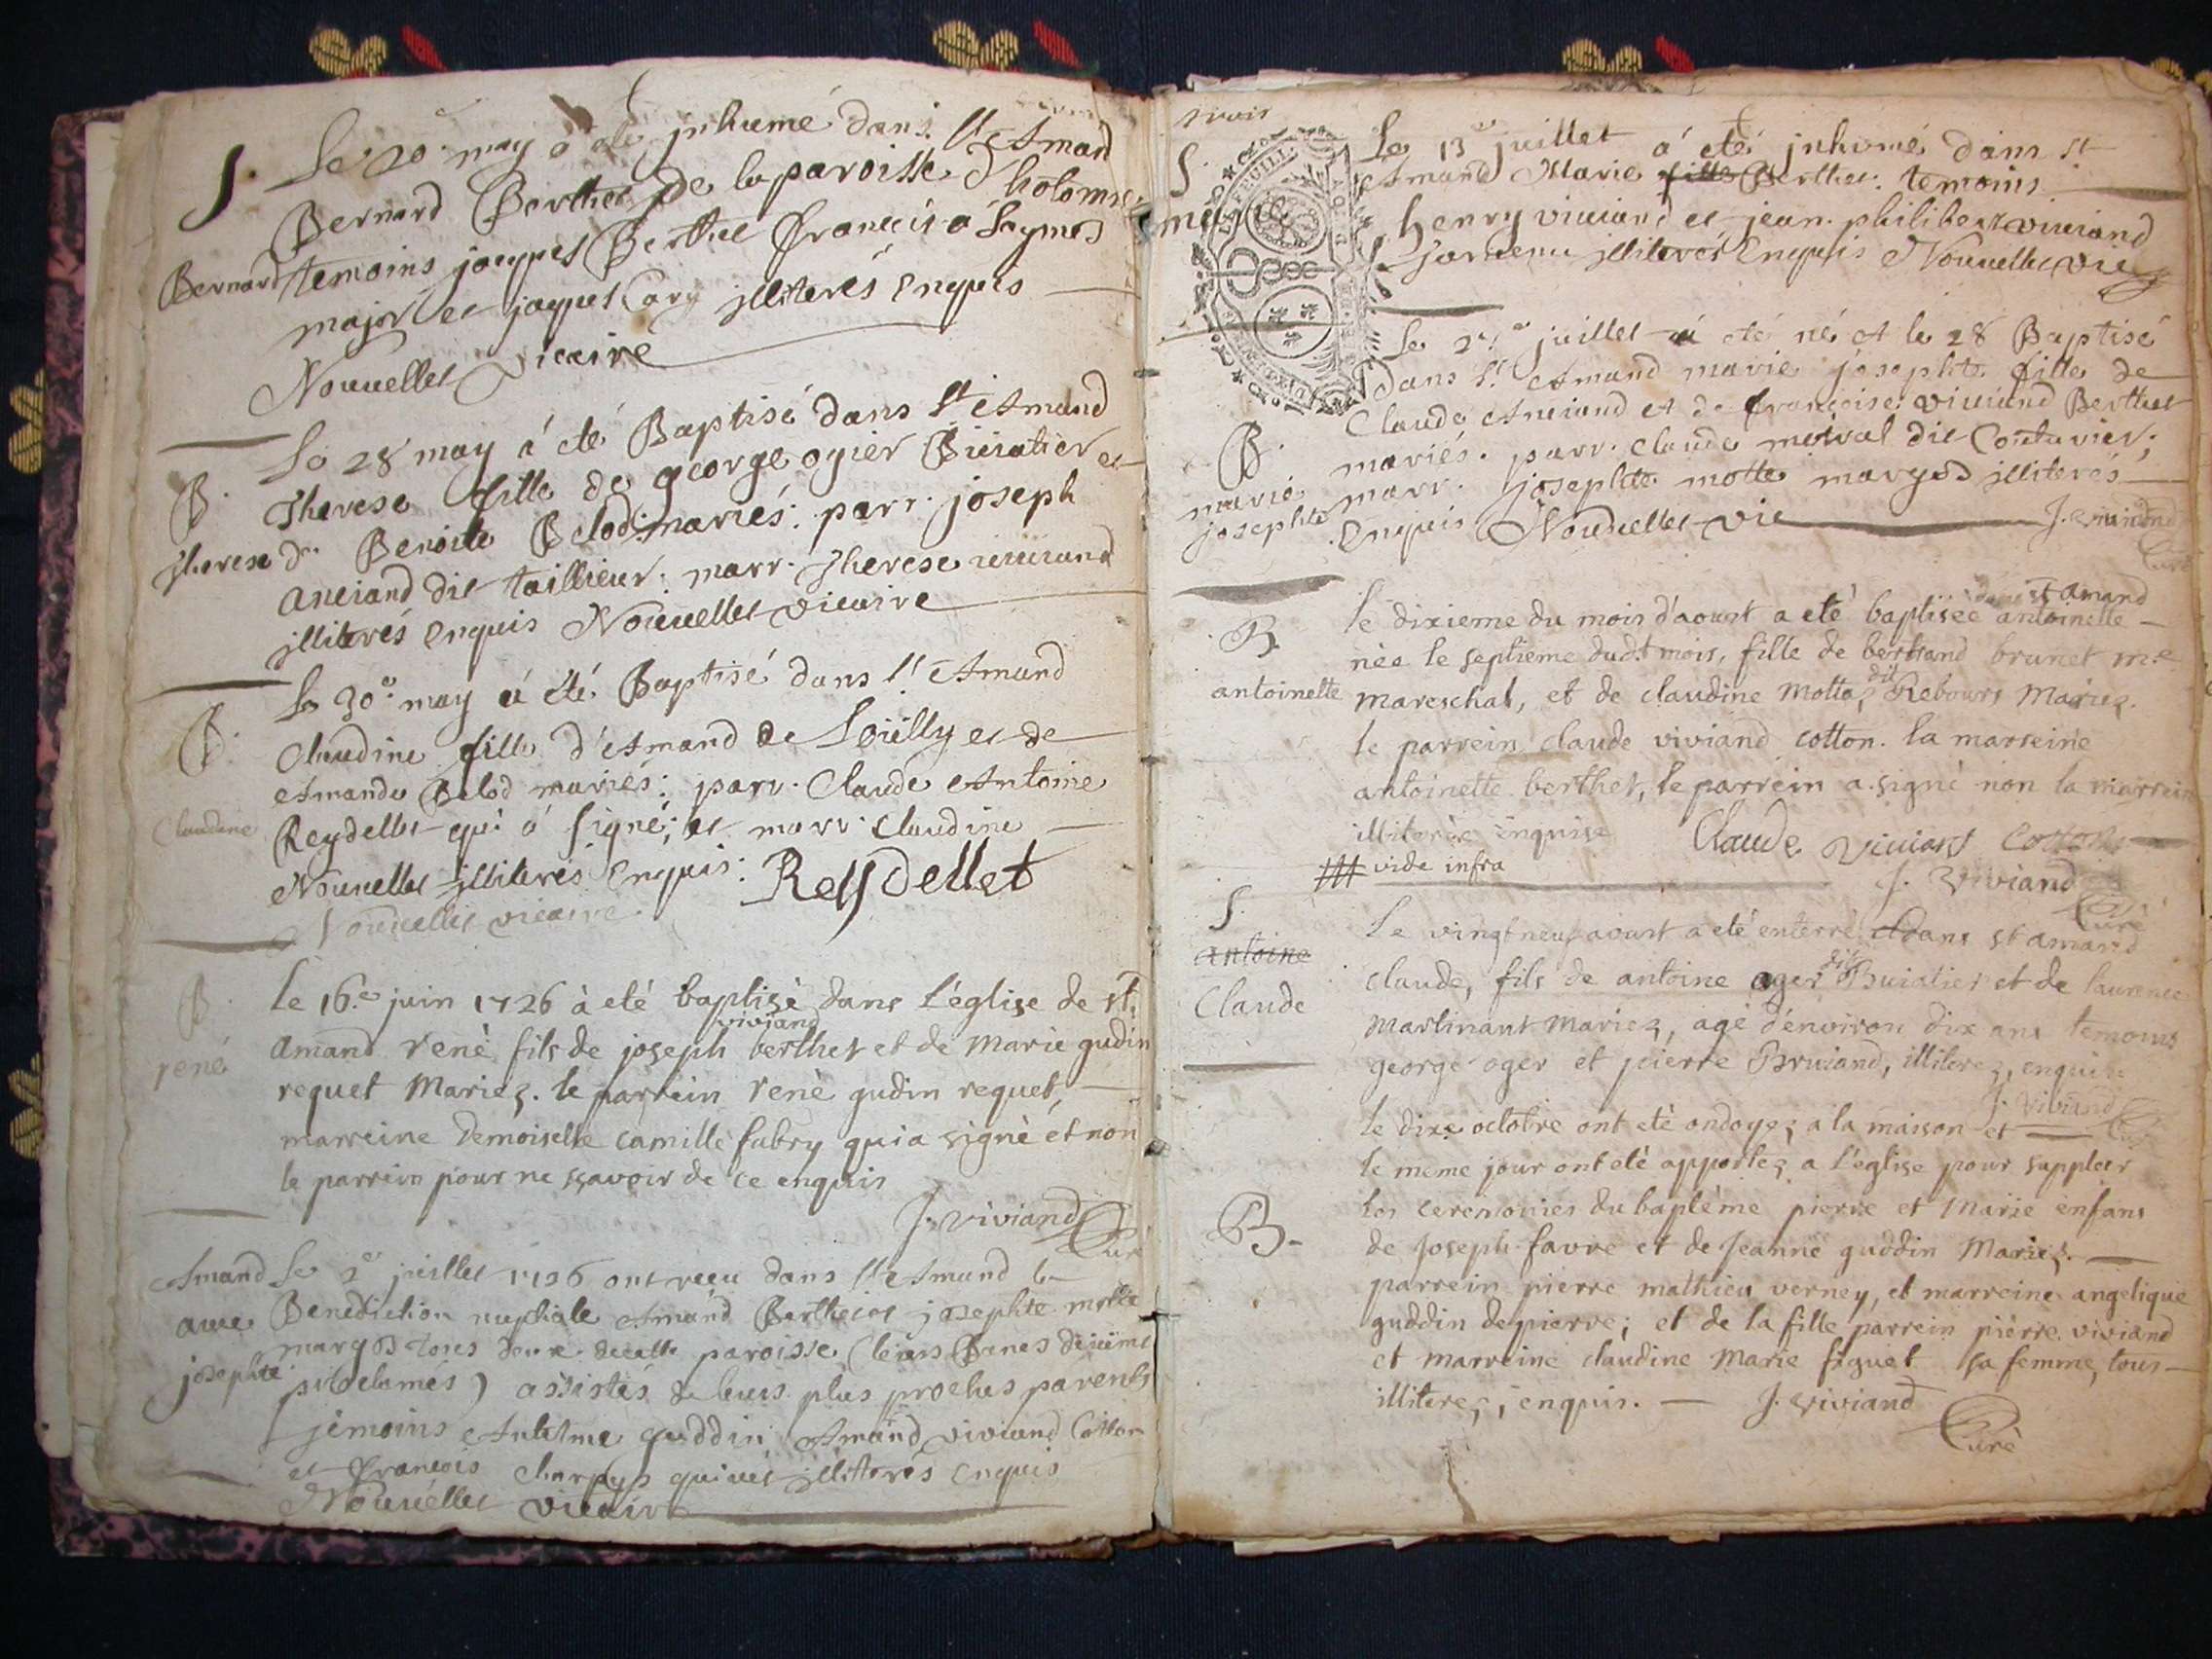 S. Le 20e may a été jnhumé dans St Amand
Bernard Berthet de la paroisse d'hotonne
Bernard temoins jacques Berthet françois a Seymod
major et jaques Cary jlliterés Enquis
Nouuellet Vicaire
Le 28 may á eté Baptisé dans St Amand
B. Therese fille de george ogier Buiratier et
Therese de Benoite Belod mariés: parr. joseph
Anciand dit taillieur: marr. Therese uiuiand
jlliterés Enquis Nouuellet vicaire
Le 30e may á été Baptisé dans St Amand
B. Claudine fille d'Amand de Loüilly et de
Amande Belod mariés: parr. Claude Antoine
Claudine Reydellet qui á signé; et marr. Claudine
Nouuellet jlliterés Enquis: Reydellet
Nouuellet vicaire
B. le 16.e juin 1726 à eté baptisè dans l'église de st.
viviand
rené amand renè fils de joseph berthet et de Marie gudin
requet Mariez. le parrein renè gudin requet,
marreine Demoiselle camille fabry qui a signè et non
le parrein pour ne sçavoir de ce enquis
J. Viviand Curé
Amand Le 2e juillet 1726 ont reçu dans St Amand la
avec Benediction nuptiale Amand Berthet et josephte motte
josephte margod tous deux de cette paroisse (leurs Banes
publiés) assistés de leurs plus proches parents
temoins Antelme guddin Amand viviand Cotton
et françois jlliterés Enquis
Nouuellet Vicaire
S. Le 13e juillet á eté jnhumé dans St
Amand Marie fille Berthet. temoins
Marie henry viuiand et jean philibert viuiand
jlliterés Enquis Nouuellet vic
Le juillet á eté né et le 28 Baptisé
dans St Amand marie josephte fille de
Claude Anciand et de françoise viuiand Berthet
B. mariés. parr. Claude merval dit Couturier;
marie marr. josephte motte margod jlliterés
josephte Enquis Nouuellet vic J. viviand
Curé
dans st amand
B. le dixieme du mois d'aoust a eté baptisèe antoinette
nèe le septieme dud.t mois, fille de bertrand brunet m.e
dit
antoinette mareschal, et de claudine Motte, Rebours Mariez.
le parrein claude viviand cotton. la marreine
antoinette berthet, le parrein a signè non la marreine
illiterèe enquise Claude Viviand Cotton
vide infra
J. Viviand Curè
S. Le vingt neuf aoust a etè enterrè dans st amand
antoine
dit
Claude claude, fils de antoine oger Buiratier et de laurence
Martinant Mariez, agè d'environ dix ans temoins
george oger et pierre Bruiand, illiterez, enquis
J. Viviand Curé
le dixe octobre ont etè ondoyez a la maison et
le meme jour ont etè apportez a l'èglise pour suppleer
les ceremonies du baptème pierre et Marie enfans
B. de Joseph favre et de Jeanne guddin Mariez.
parrein pierre mathieu verney, et marreine angelique
guddin de pierre; et de la fille parrein pièrre viviand
et marreine claudine Marie figuet sa femme, tous
illiterez, enquis. J. Viviand
Curè